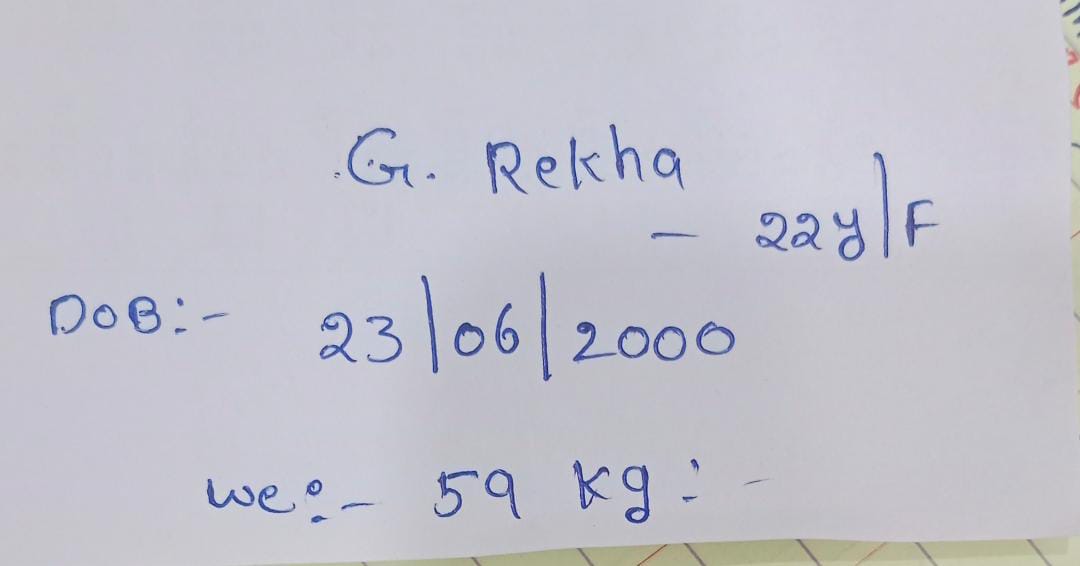 G. Rekha
- 22y/F
DOB:- 23/06/2000
We:- 59 Kg:-